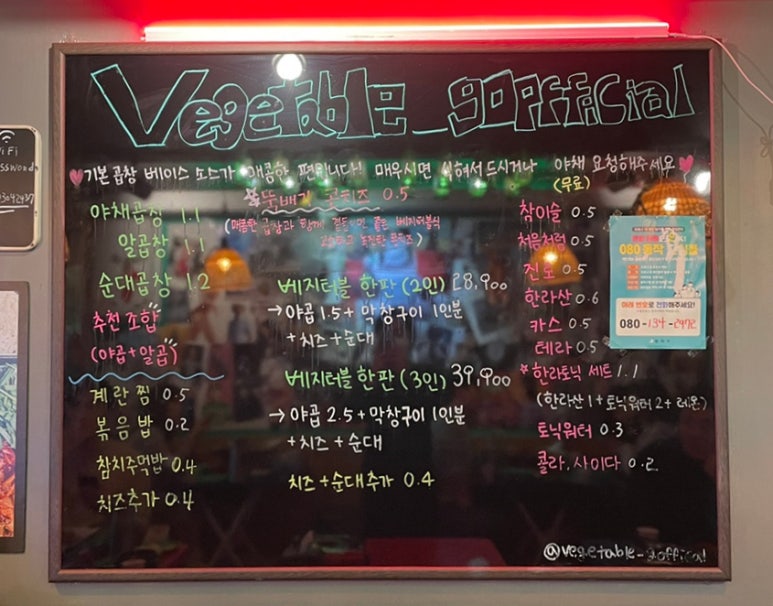 Vegetable_gopfficial
기본곱창 베이스 소스가 매콤한 편입니다! 매우시면 식혀서 드시거나 야채 요청해주세요
(무료)
야채곱창 1.1
알곱창 1.1
순대곱창 1.2
추천 조합
(야곱+알곱)
계란찜 0.5
볶음밥 0.2
참치주먹밥 0.4
치즈추가 0.4
뚝배기 콘치즈 0.5
베지터블 한판 (2인) 28,900
→ 야곱 1.5 + 막창구이 1인분
+ 치즈 + 순대
베지터블 한판 (3인) 39,900
→ 야곱 2.5 + 막창구이 1인분
+ 치즈 + 순대
치즈 + 순대추가 0.4
참이슬 0.5
처음처럼 0.5
진로 0.5
한라산 0.6
카스 0.5
테라 0.5
한라토닉 세트 1.1
(한라산 1 + 토닉워터 2 + 레몬)
토닉워터 0.3
콜라, 사이다 0.2
아래 번호로 전화해주세요!
080-134-2492